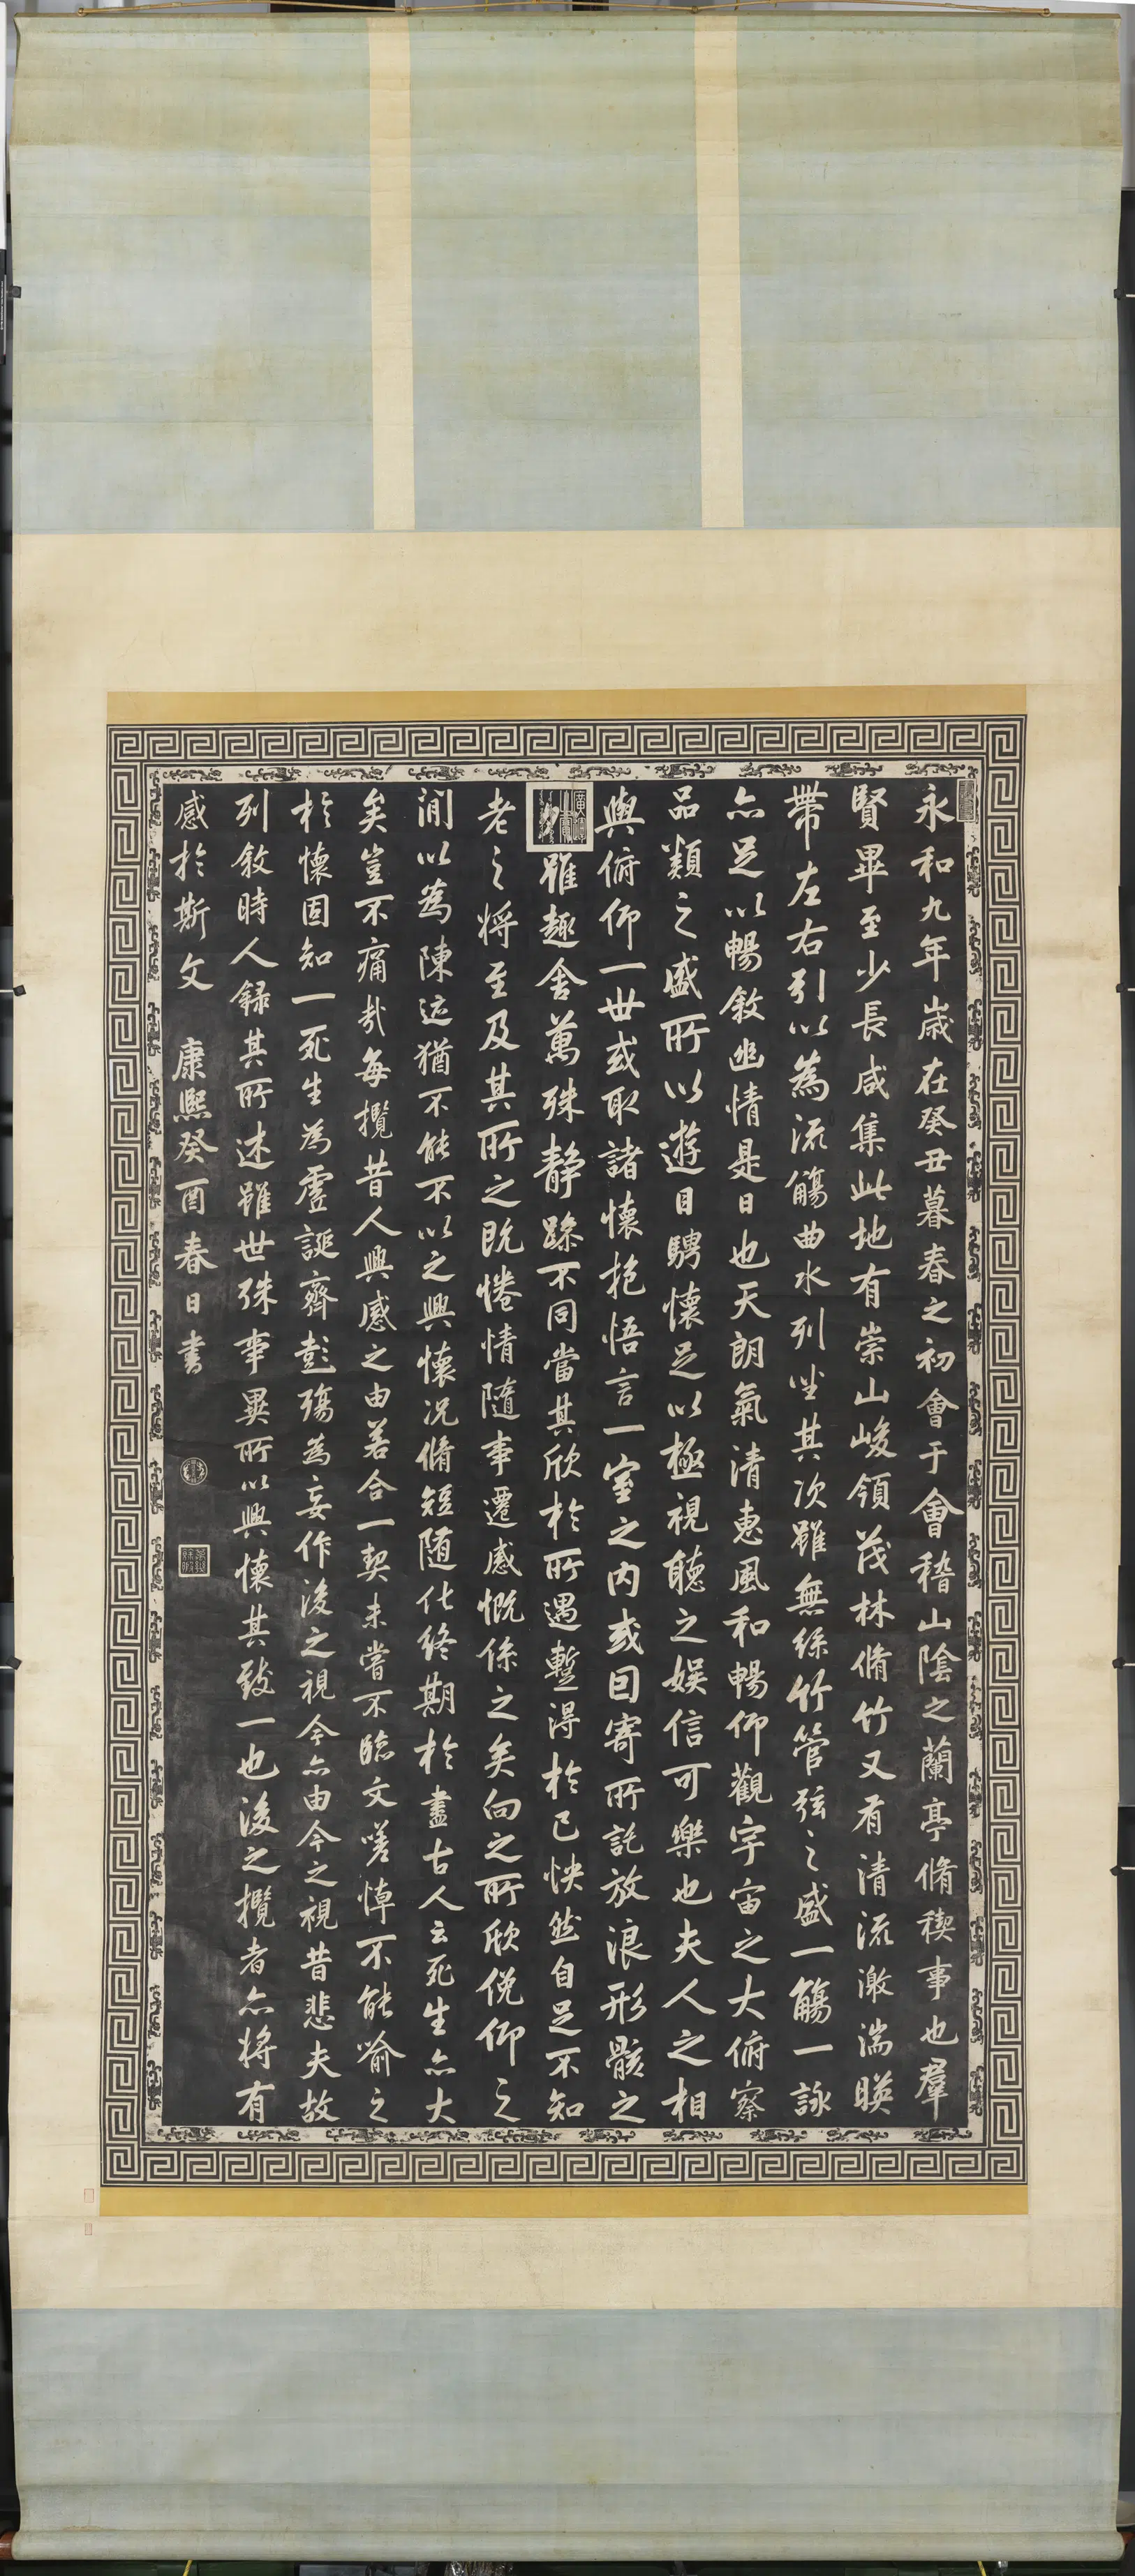 永和九年歲在癸丑暮春之初會于會稽山陰之蘭亭脩稧事也羣
賢畢至少長咸集此地有崇山峻領茂林脩竹又有清流激湍暎
帶左右引以為流觴曲水列坐其次雖無絲竹管弦之盛一觴一詠
亦足以暢敘幽情是日也天朗氣清惠風和暢仰觀宇宙之大俯察
品類之盛所以遊目騁懷足以極視聽之娛信可樂也夫人之相
與俯仰一世或取諸懷抱悟言一室之內或因寄所託放浪形骸之
外雖趣舍萬殊静躁不同當其欣於所遇蹔得於己怏然自足不知
老之將至及其所之既惓情隨事遷感慨係之矣向之所欣俛仰之
閒以為陳迹猶不能不以之興懷況脩短隨化終期於盡古人云死生亦大
矣豈不痛哉每攬昔人興感之由若合一契未嘗不臨文嗟悼不能喻之
於懷固知一死生為虛誕齊彭殤為妄作後之視今亦由今之視昔悲夫故
列敘時人錄其所述雖世殊事異所以興懷其致一也後之攬者亦將有
感於斯文 康熙癸酉春日書